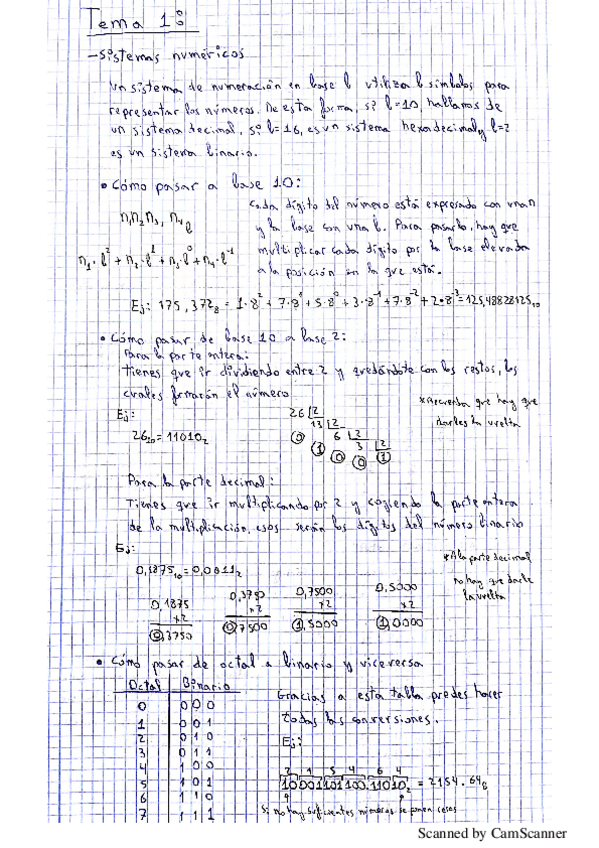 Tema 1:
- Sistemas numéricos
Un sistema de numeración en base b utiliza b símbolos para
representar los números. De esta forma, si b=10 hallamos de
un sistema decimal, si b=16, es un sistema hexadecimal y b=2
es un sistema binario.
• Cómo pasar a base 10:
n₁n₂n₃, n₄ b
n₁·b² + n₂·b¹ + n₃·b⁰ + n₄·b⁻¹
Cada dígito del número está expresado con una n
y la base con una b. Para pasarlo, hay que
multiplicar cada dígito por la base elevada
a la posición en la que está.
Ej: 175,372₈ = 1·8² + 7·8¹ + 5·8⁰ + 3·8⁻¹ + 7·8⁻² + 2·8⁻³ =
• Cómo pasar de base 10 a base 2:
Para la parte entera:
Tienes que ir dividiendo entre 2 y quedándote con los restos, los
cuales formarán el número
Ej:
26₁₀ = 11010₂
26 |2
13 |2
0 6 |2
1 3 |2
0 0 1
*Recuerda que hay que
darles la vuelta
Para la parte decimal:
Tienes que ir multiplicando por 2 y cogiendo la parte entera
de la multiplicación, esos serán los dígitos del número binario
Ej:
0,1875₁₀ = 0,0011₂
*A la parte decimal
no hay que darle
la vuelta
0,1875 0,3750 0,7500 0,5000
x2 x2 x2 x2
0,3750 0,7500 1,5000 1,0000
• Cómo pasar de octal a binario y viceversa
Octal Binario
0 000
1 001
2 010
3 011
4 100
5 101
6 110
7 111
Gracias a esta tabla puedes hacer
todas las conversiones.
Ej:
2 1 5 4 6 4
10001101100.11010₂ = 2154.64₈
Si no hay suficientes números se ponen ceros
Scanned by CamScanner